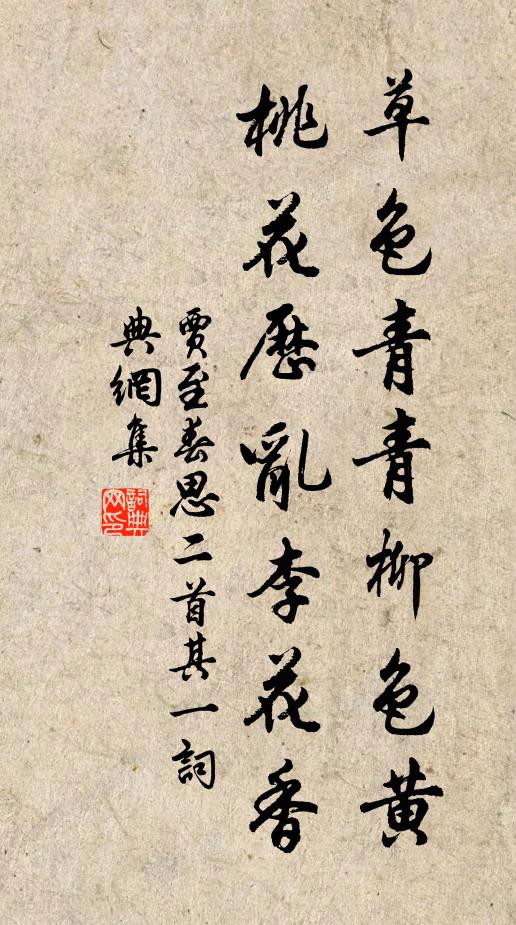 草色青青柳色黄
桃花歷亂李花香
賈至春思二首其一詞
典網集
詞典
网印